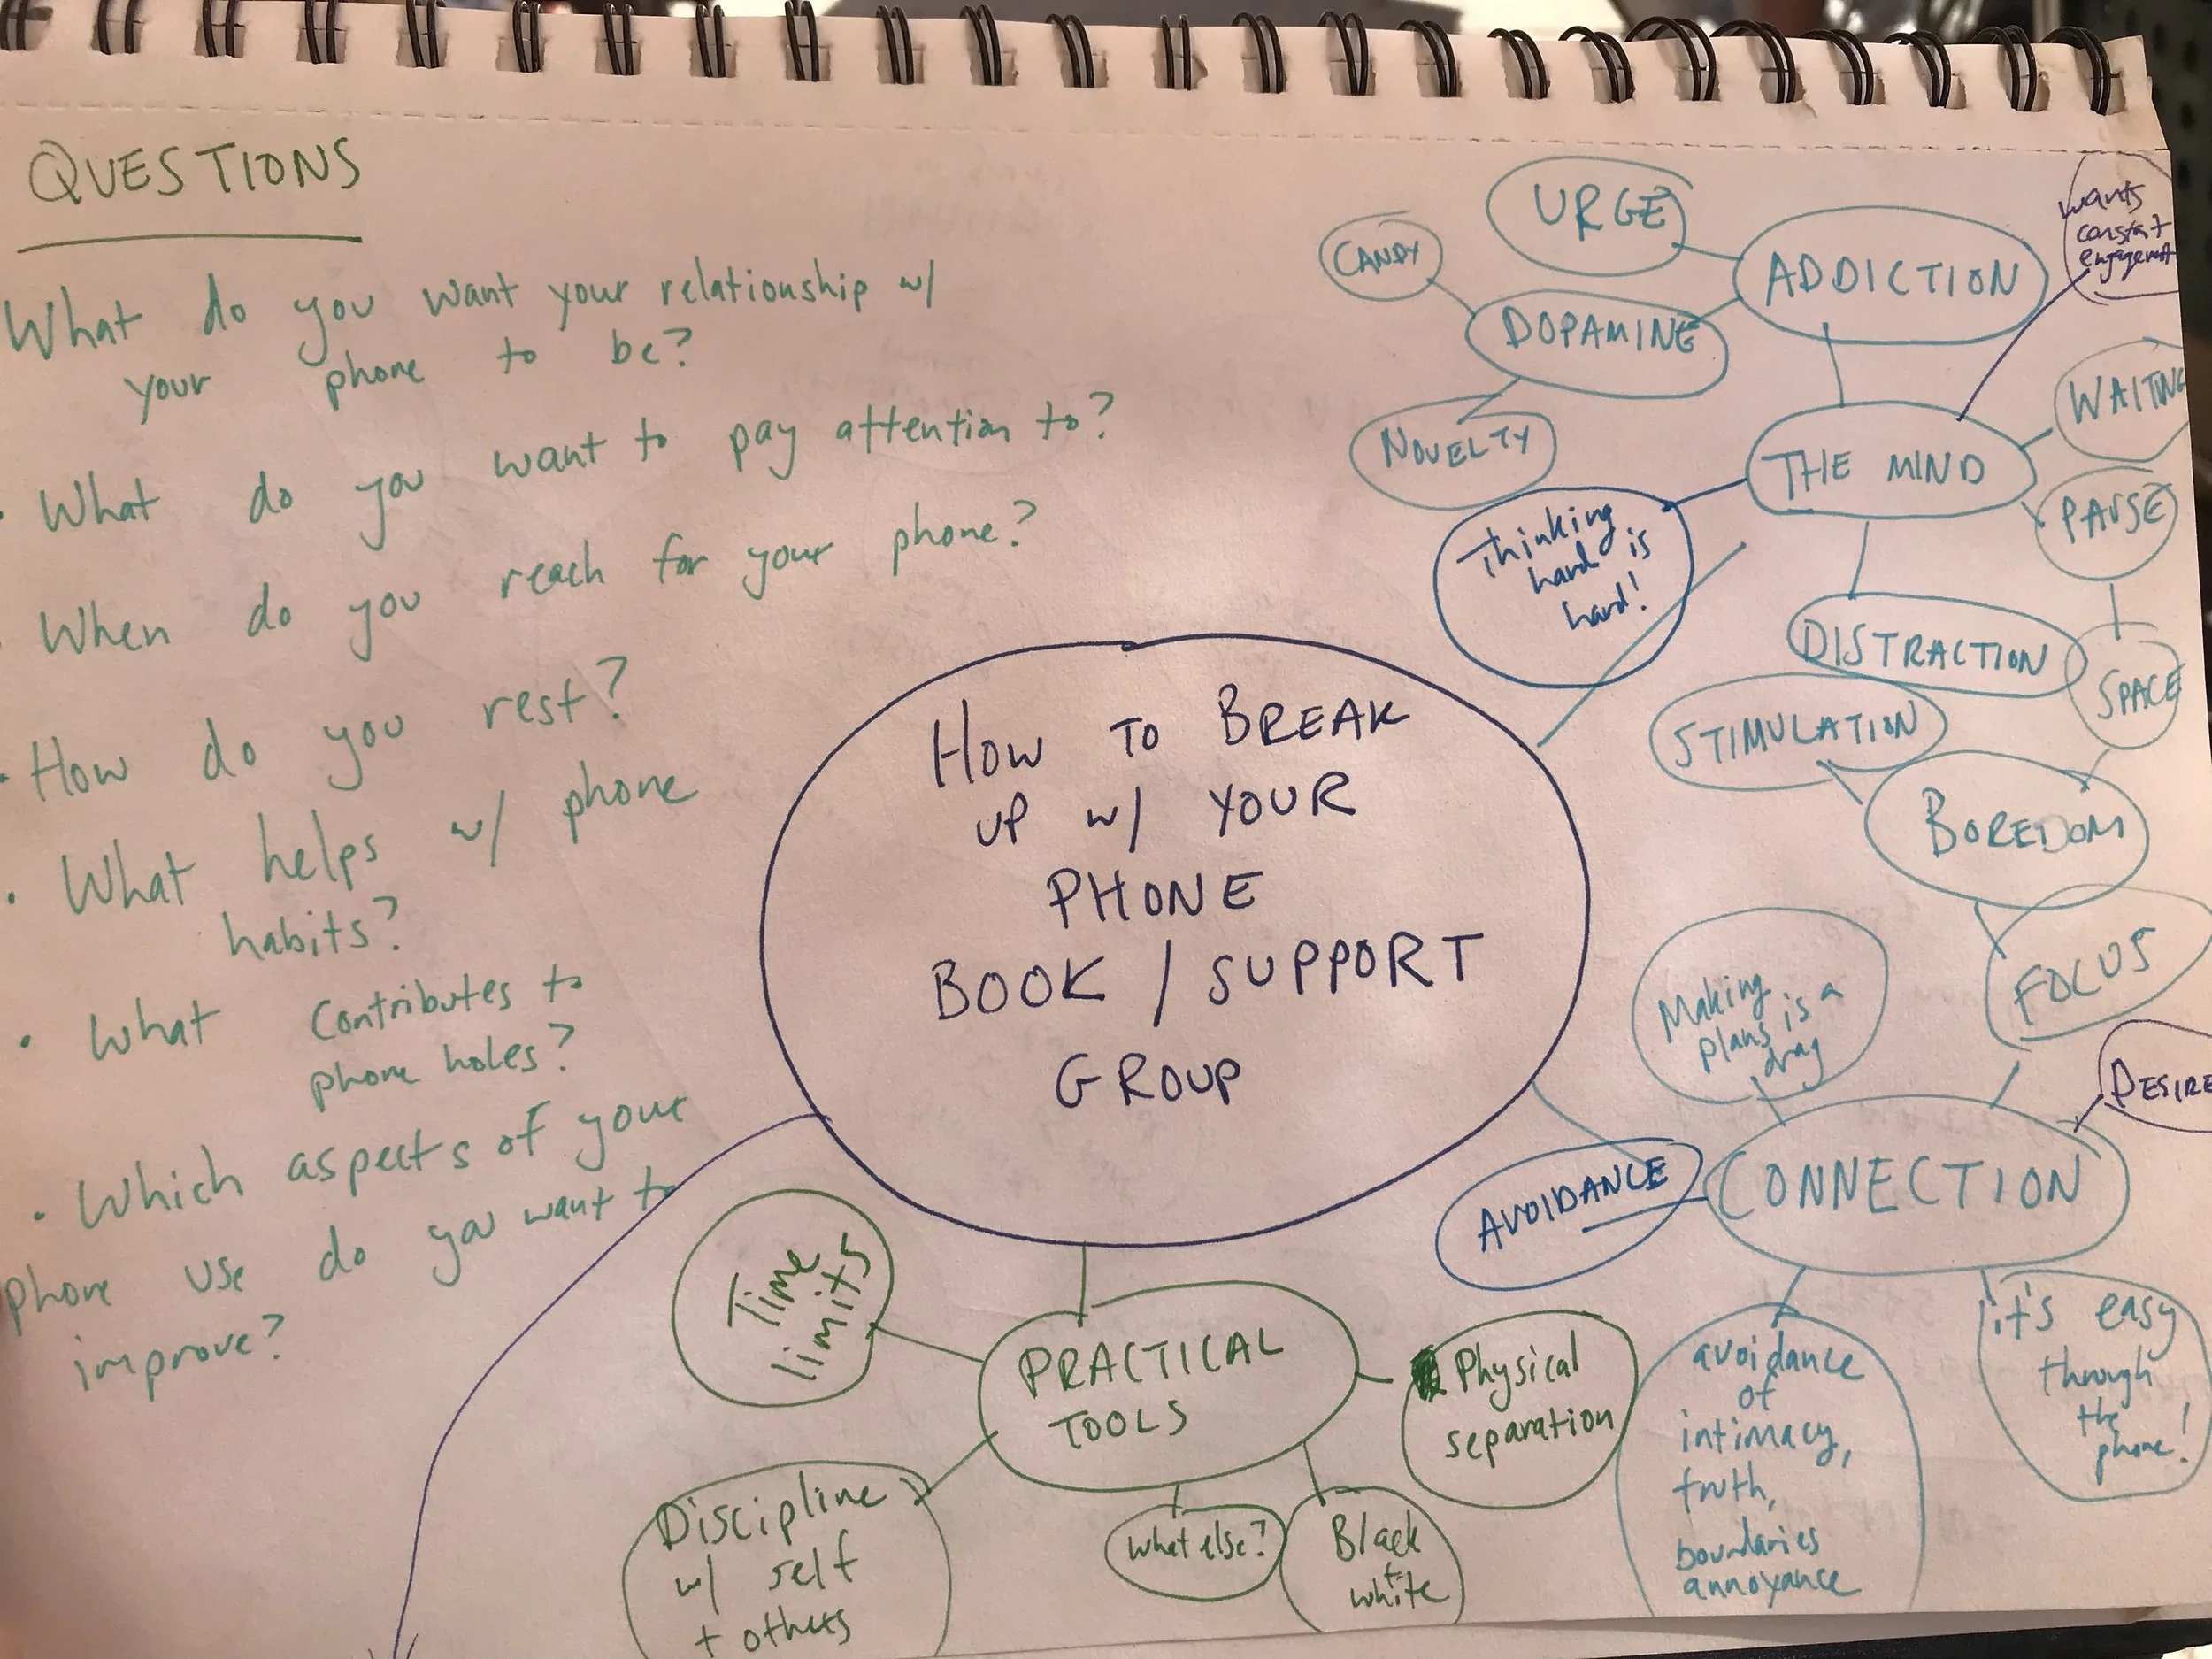 QUESTIONS
What do you want your relationship w/
your phone to be?
· What do you want to pay attention to?
· When do you reach for your phone?
· How do you rest?
· What helps w/ phone
habits?
· What contributes to
phone holes?
· Which aspects of your
phone use do you want to
improve?
HOW TO BREAK
UP W/ YOUR
PHONE
BOOK / SUPPORT
GROUP
URGE
CANDY
ADDICTION
DOPAMINE
NOVELTY
wants
constant
engagement
THE MIND
WAITING
PAUSE
SPACE
Thinking
hard is
hard!
DISTRACTION
STIMULATION
BOREDOM
FOCUS
Making
plans is a
drag
DESIRE
AVOIDANCE
CONNECTION
avoidance
of
intimacy,
truth,
boundaries
annoyance
it's easy
through
the
phone!
PRACTICAL
TOOLS
Time
limits
Physical
separation
Discipline
w/ self
+ others
What else?
Black
+
white